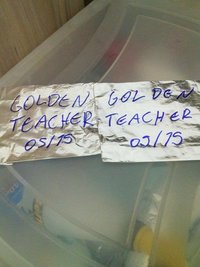 GOLDEN
TEACHER
05/15
GOLDEN
TEACHER
02/15